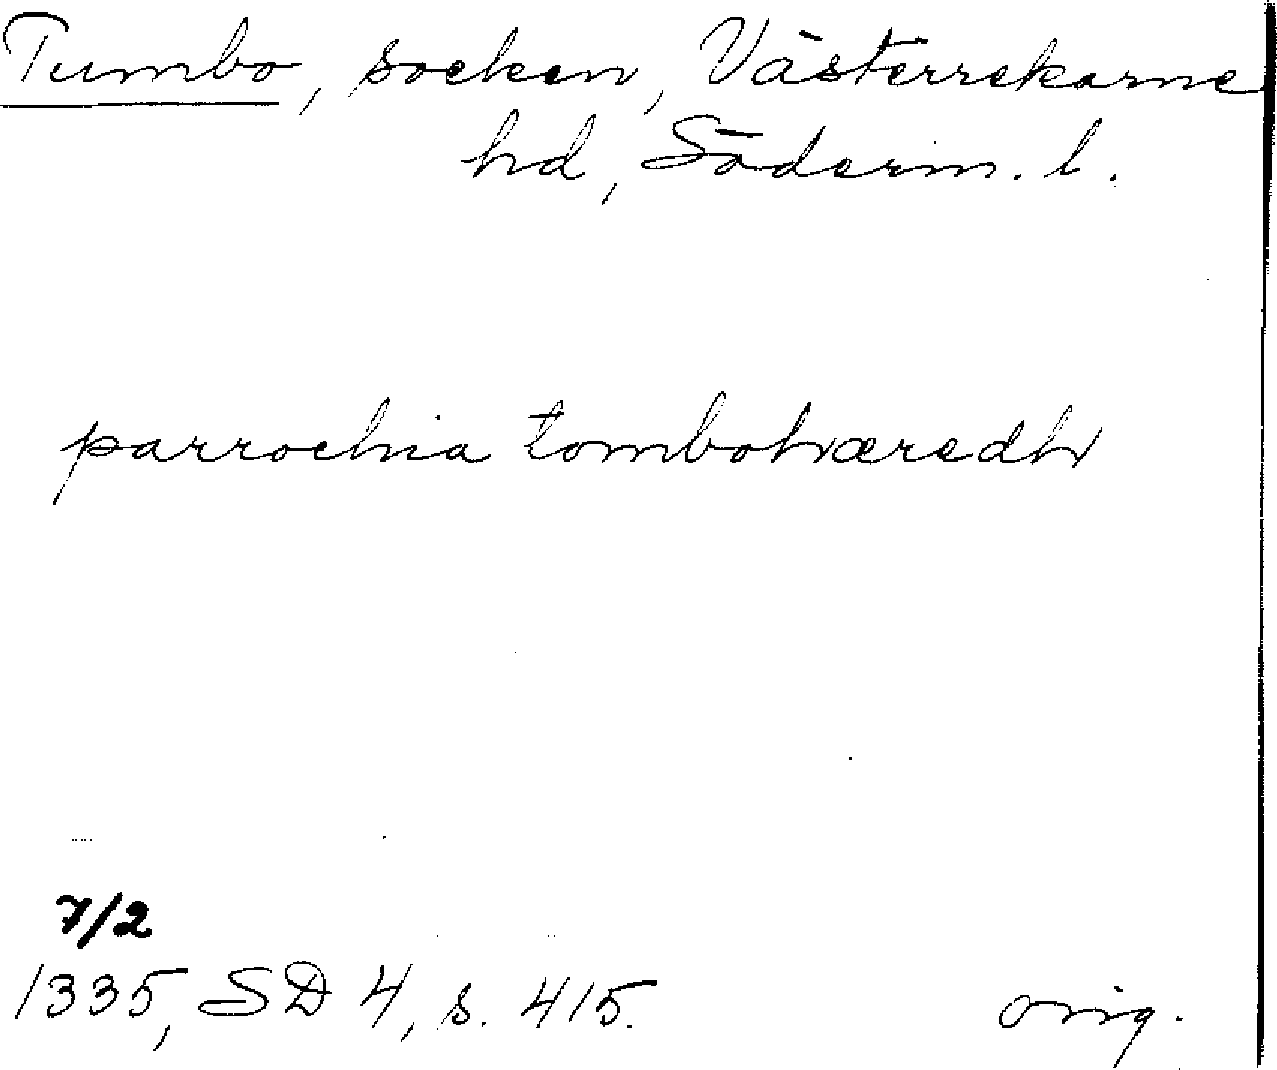 Tumbo, socken, Västerrekarne
hd, Söderm. l.
parrochia tombohæredh
7/2
1335, SD 4, s. 415.
orig.